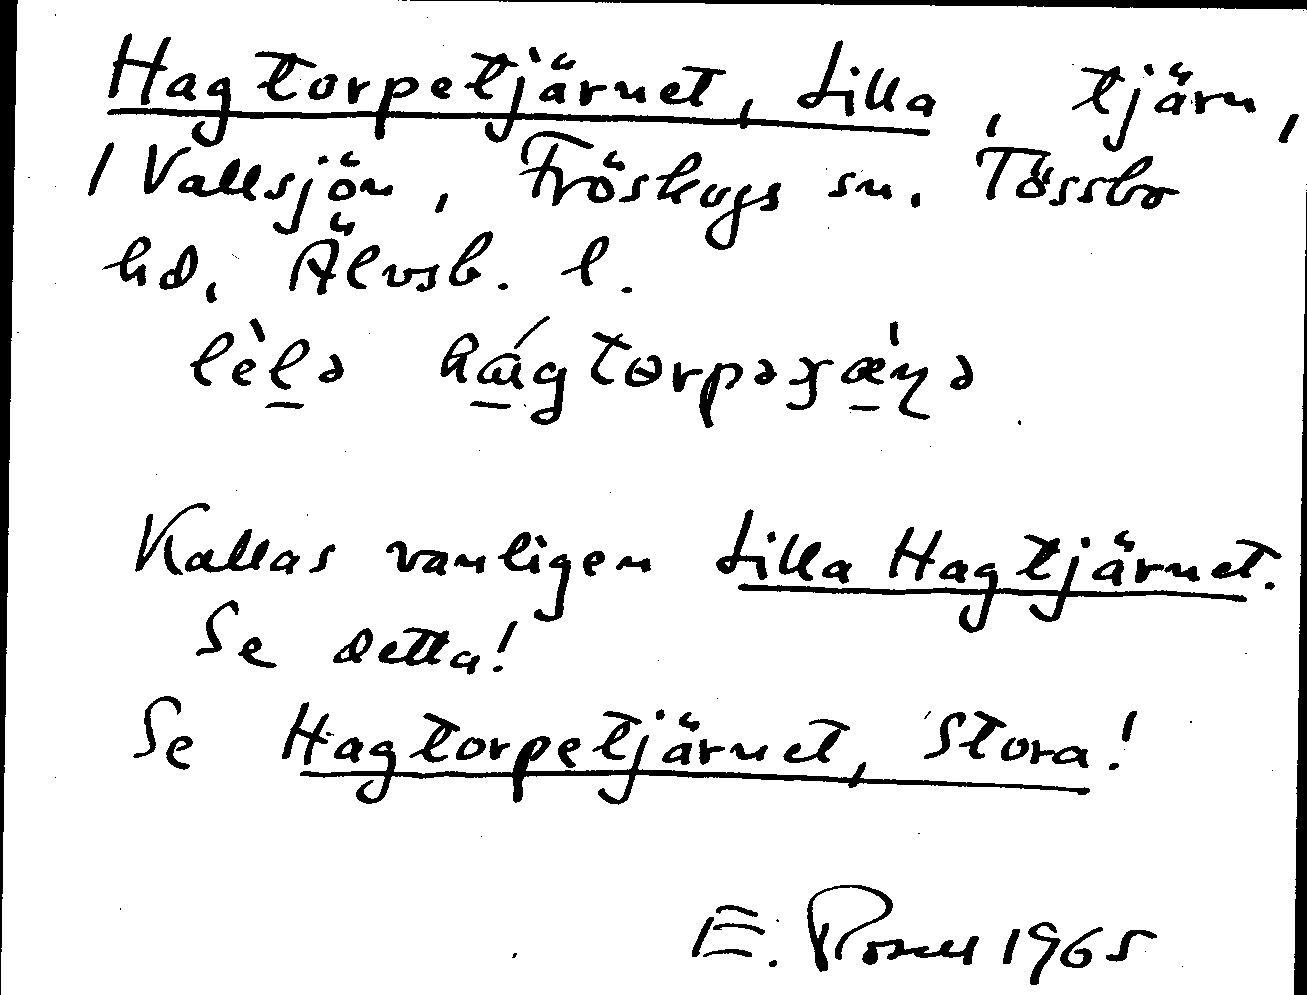 Hagtorpetjärnet, Lilla, tjärn,
/ Vallsjön, Fröskogs sn. Tössbo
hd, Älvsb. l.
Kallas vanligen Lilla Hagtjärnet.
Se detta!
Se Hagtorpetjärnet, Stora!
E. Rosell 1965